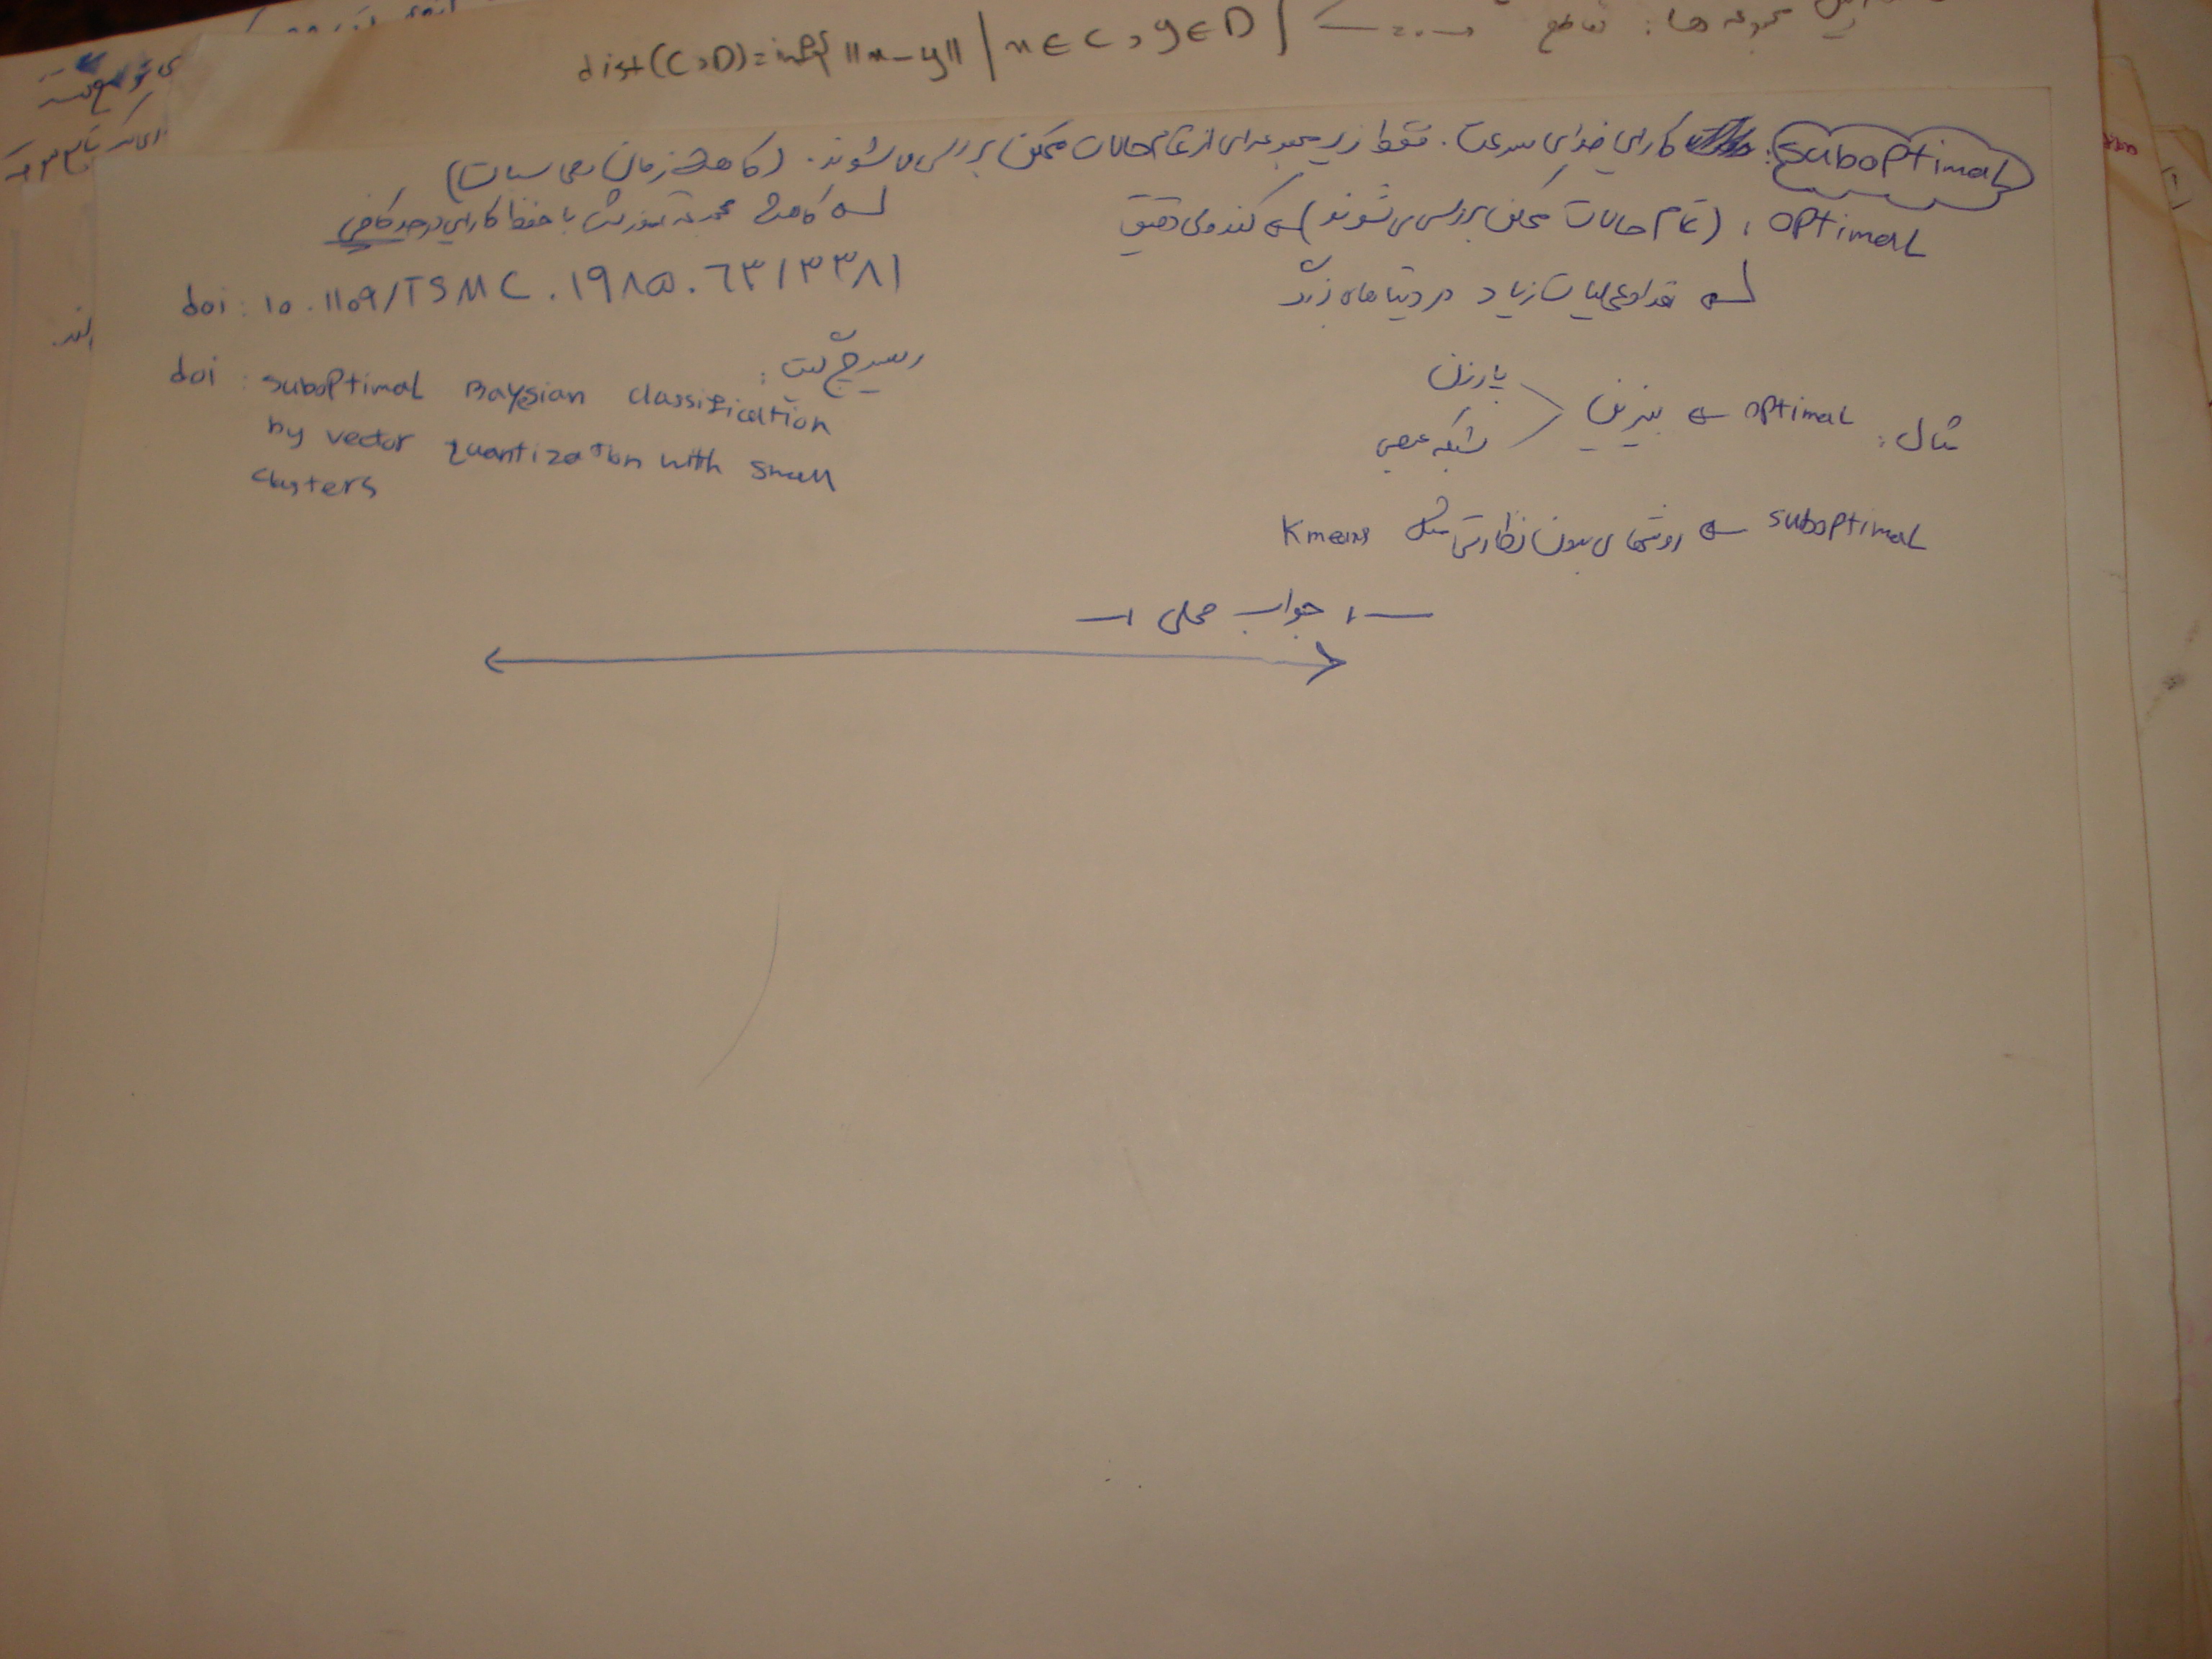 dist(C,D)=inf{ ||x-y|| | x∈C, y∈D }
مجموعه ها: تقاطع
suboptimal: کارایی فدای سرعت. فقط زیرمجموعه ای از تمام حالات ممکن بررسی می شوند. (کاهش زمان محاسبات)
کاهش مجموعه آموزش با حفظ کارایی در حد کافی
optimal: (تمام حالات ممکن بررسی می شوند) کند ولی دقیق
تعداد عملیات زیاد در دیتاهای بزرگ
doi: 10.1109/TSMC.۱۹۸۵.٦۳۱۳۳۸۱
ریسرچ گیت:
doi: suboptimal Baysian classification
by vector quantization with small
clusters
مثال: optimal ← بیزین
پارزن
شبکه عصبی
suboptimal ← روشهای بدون نظارتی مثل Kmeans
جواب محلی